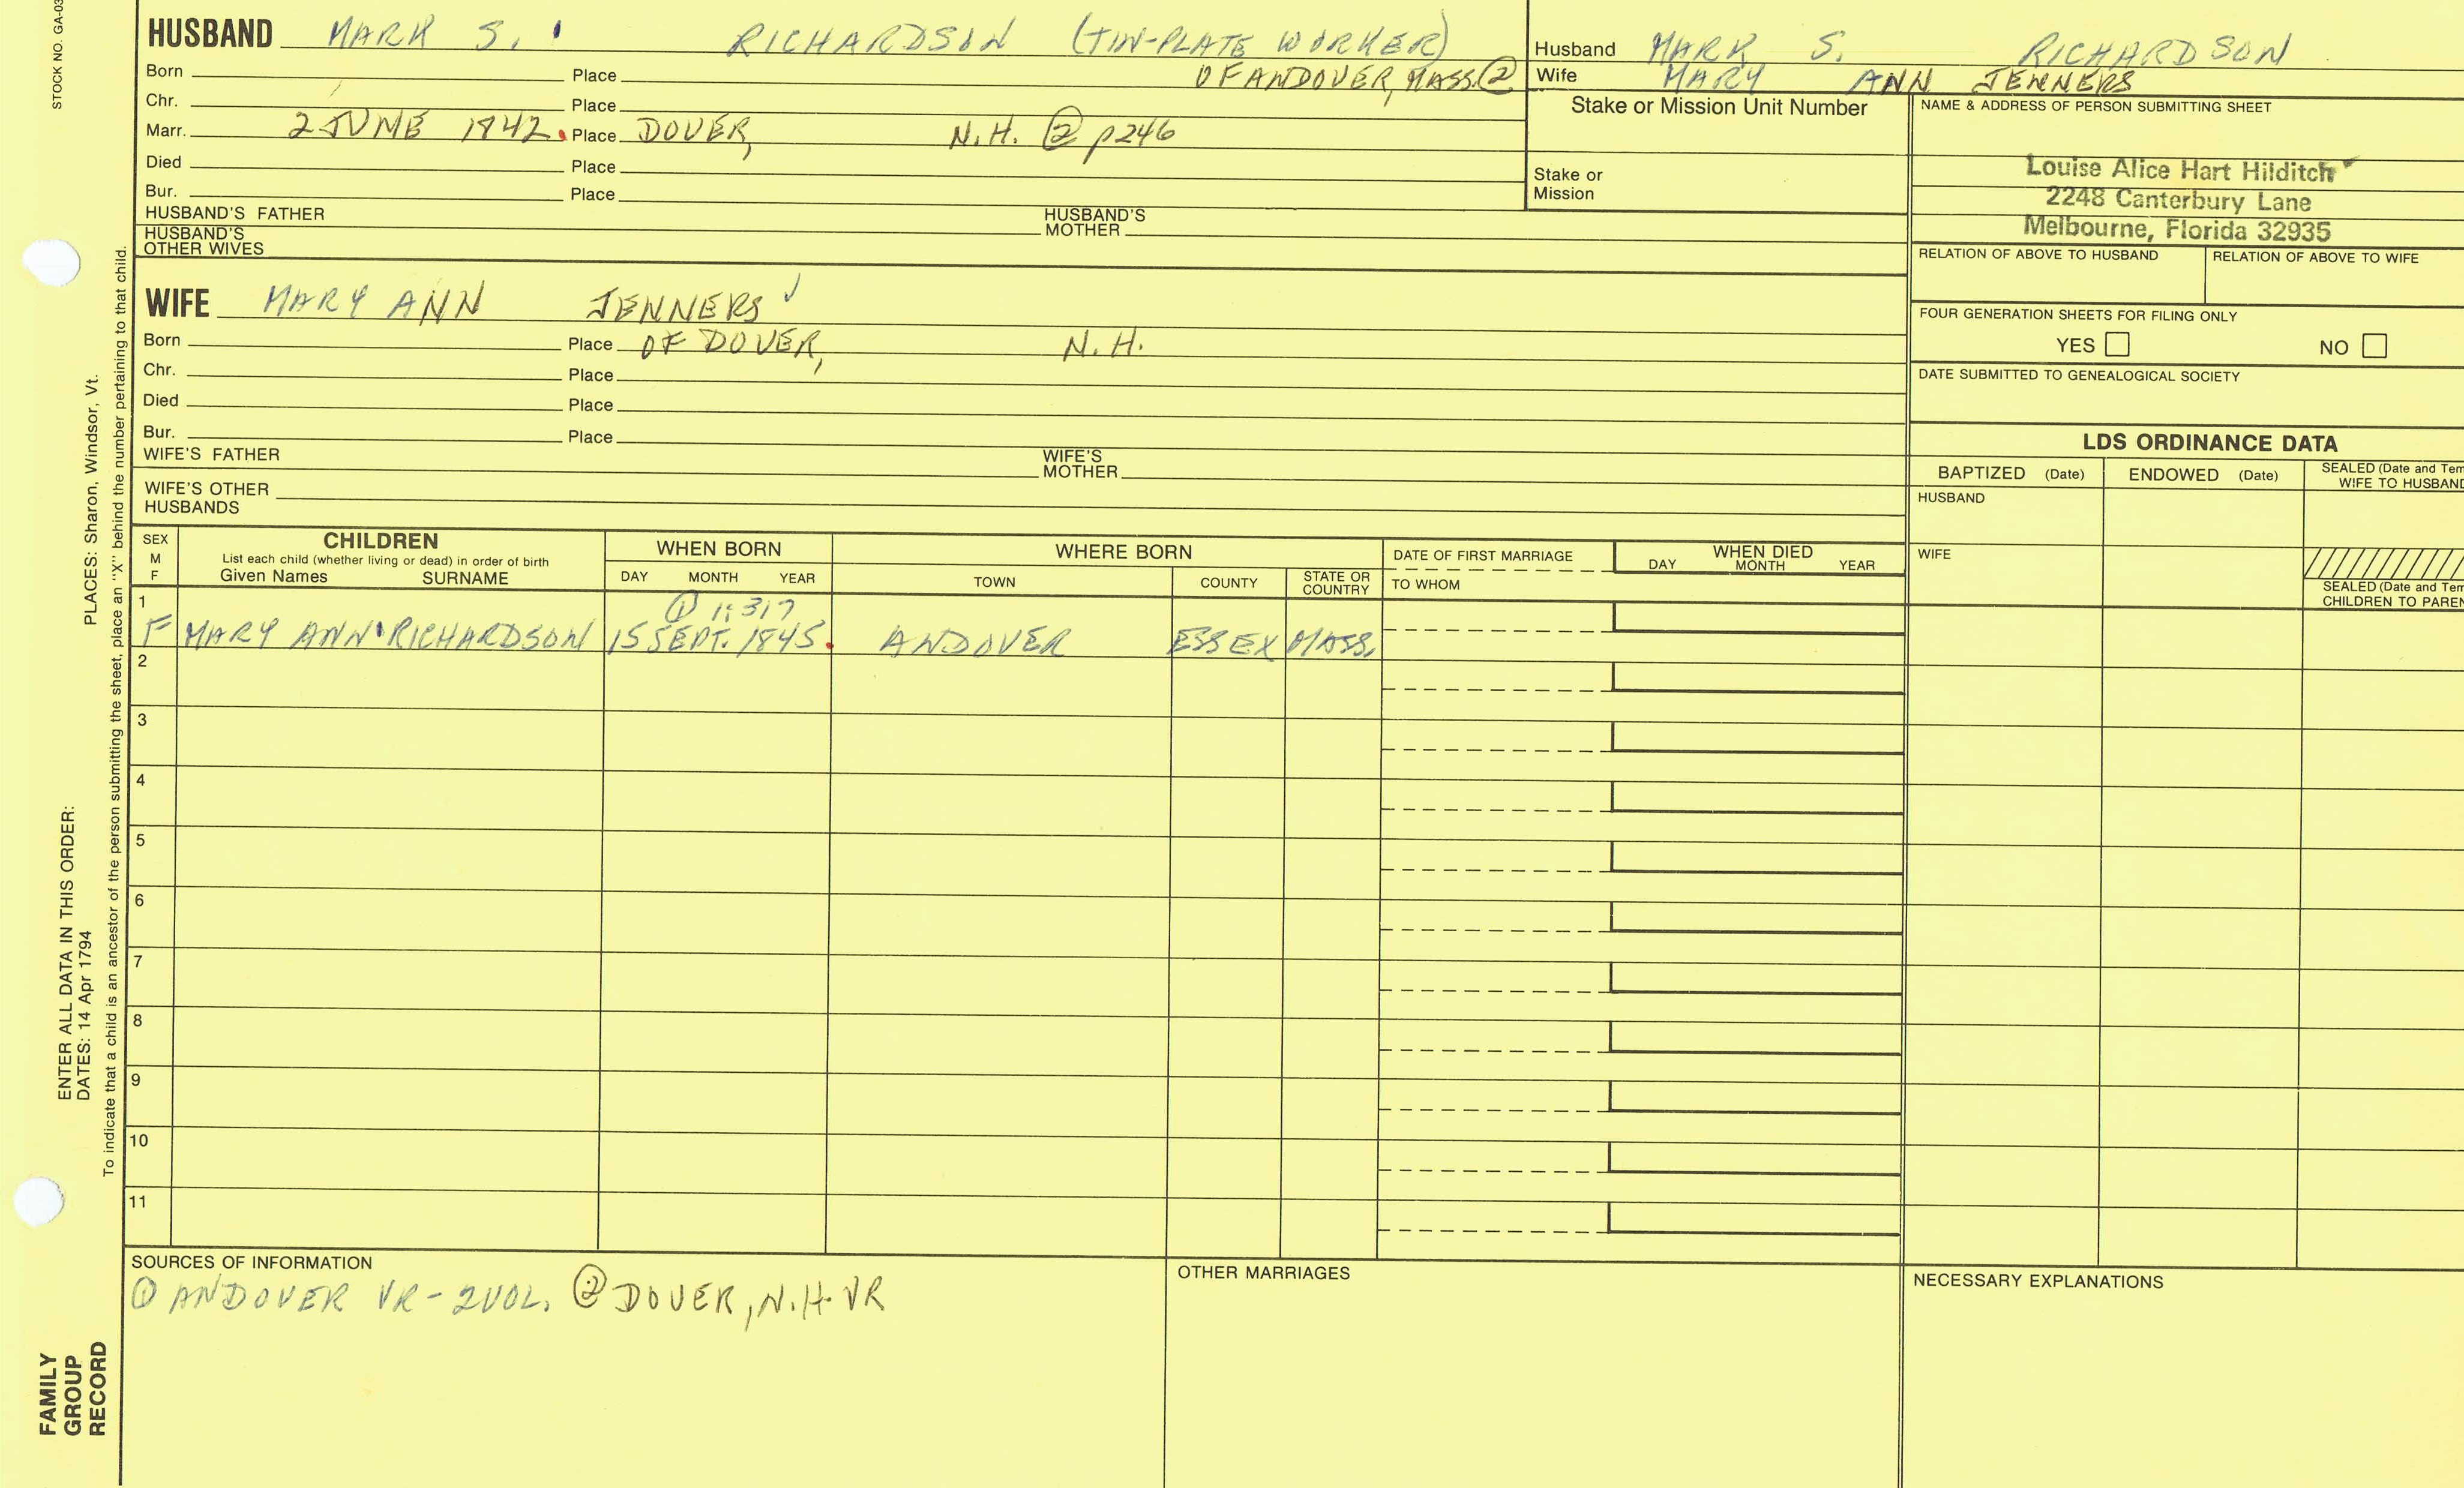 STOCK NO. GA-03
HUSBAND MARK S. RICHARDSON (TIN-PLATE WORKER)
Born Place OF ANDOVER, MASS. ②
Chr. Place
Marr. 2 JUNE 1842. Place DOVER, N.H. ② p246
Died Place
Bur. Place
HUSBAND'S FATHER HUSBAND'S MOTHER
HUSBAND'S OTHER WIVES
Husband MARK S. RICHARDSON
Wife MARY ANN JENNERS
Stake or Mission Unit Number
Stake or Mission
NAME & ADDRESS OF PERSON SUBMITTING SHEET
Louise Alice Hart Hilditch
2248 Canterbury Lane
Melbourne, Florida 32935
RELATION OF ABOVE TO HUSBAND RELATION OF ABOVE TO WIFE
FOUR GENERATION SHEETS FOR FILING ONLY
YES NO
DATE SUBMITTED TO GENEALOGICAL SOCIETY
WIFE MARY ANN JENNERS
Born Place OF DOVER, N.H.
Chr. Place
Died Place
Bur. Place
WIFE'S FATHER WIFE'S MOTHER
WIFE'S OTHER HUSBANDS
LDS ORDINANCE DATA
BAPTIZED (Date) ENDOWED (Date) SEALED (Date and Tem
WIFE TO HUSBAND
HUSBAND
WIFE
SEALED (Date and Tem
CHILDREN TO PAREN
SEX M F
CHILDREN
List each child (whether living or dead) in order of birth
Given Names SURNAME
WHEN BORN
DAY MONTH YEAR
WHERE BORN
TOWN COUNTY STATE OR COUNTRY
DATE OF FIRST MARRIAGE
TO WHOM
WHEN DIED
DAY MONTH YEAR
1 ① 1:317
F MARY ANN RICHARDSON 15 SEPT. 1845. ANDOVER ESSEX MASS.
2
3
4
5
6
7
8
9
10
11
SOURCES OF INFORMATION
① ANDOVER VR - 2VOL. ② DOVER, N.H. VR
OTHER MARRIAGES
NECESSARY EXPLANATIONS
PLACES: Sharon, Windsor, Vt.
To indicate that a child is an ancestor of the person submitting the sheet, place an "X" behind the number pertaining to that child.
ENTER ALL DATA IN THIS ORDER:
DATES: 14 Apr 1794
FAMILY
GROUP
RECORD